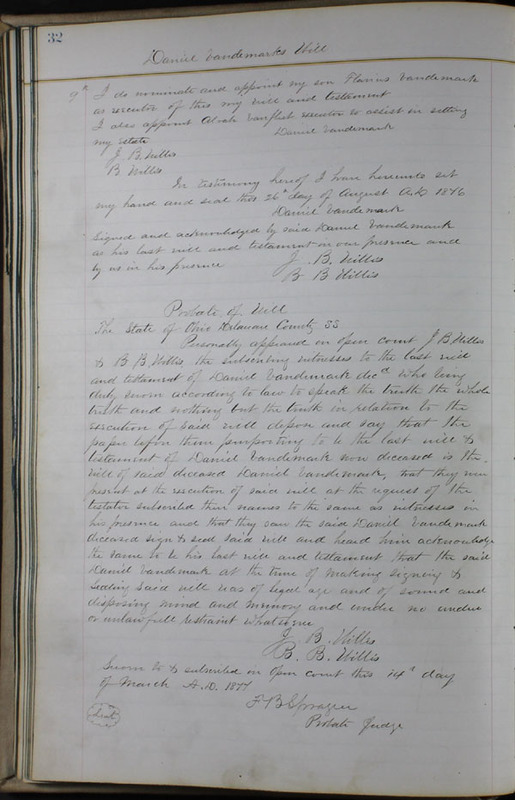 32
Daniel Vandemarks Will
9th I do nominate and appoint my son Vandemark
as executor of this my will and testament
I also appoint executor to assist in setling
my estate Daniel Vandemark
J. B. Willis
B Willis
In testimony hereof I have hereunto set
my hand and seal this 26th day of August A.D. 1876
Daniel Vandemark
Signed and acknowledged by said Daniel Vandemark
as his last will and testament in our presence and
by us in his presence J. B. Willis
B B Willis
Probate of Will
The State of Ohio Delaware County SS
Personally appeared in open court J B Willis
& B. B. Willis the subscribing witnesses to the last will
and testament of Daniel Vandemark decd who being
duly sworn according to law to speak the truth the whole
truth and nothing but the truth in relation to the
execution of said will depose and say that the
paper before them purporting to be the last will &
testament of Daniel Vandemark now deceased is the
will of said deceased Daniel Vandemark, that they were
present at the execution of said will at the request of the
testator subscribed their names to the same as witnesses in
his presence and that they saw the said Daniel Vandemark
deceased sign & seal said will and heard him acknowledge
the same to be his last will and testament that the said
Daniel Vandemark at the time of making signing &
sealing said will was of legal age and of sound and
disposing mind and memory and under no undue
or unlawfull restraint whatsoever
J. B. Willis
B. B. Willis
Sworn to & subscribed in open court this 14th day
of March A.D. 1877
Seal F B Sprague
Probate Judge